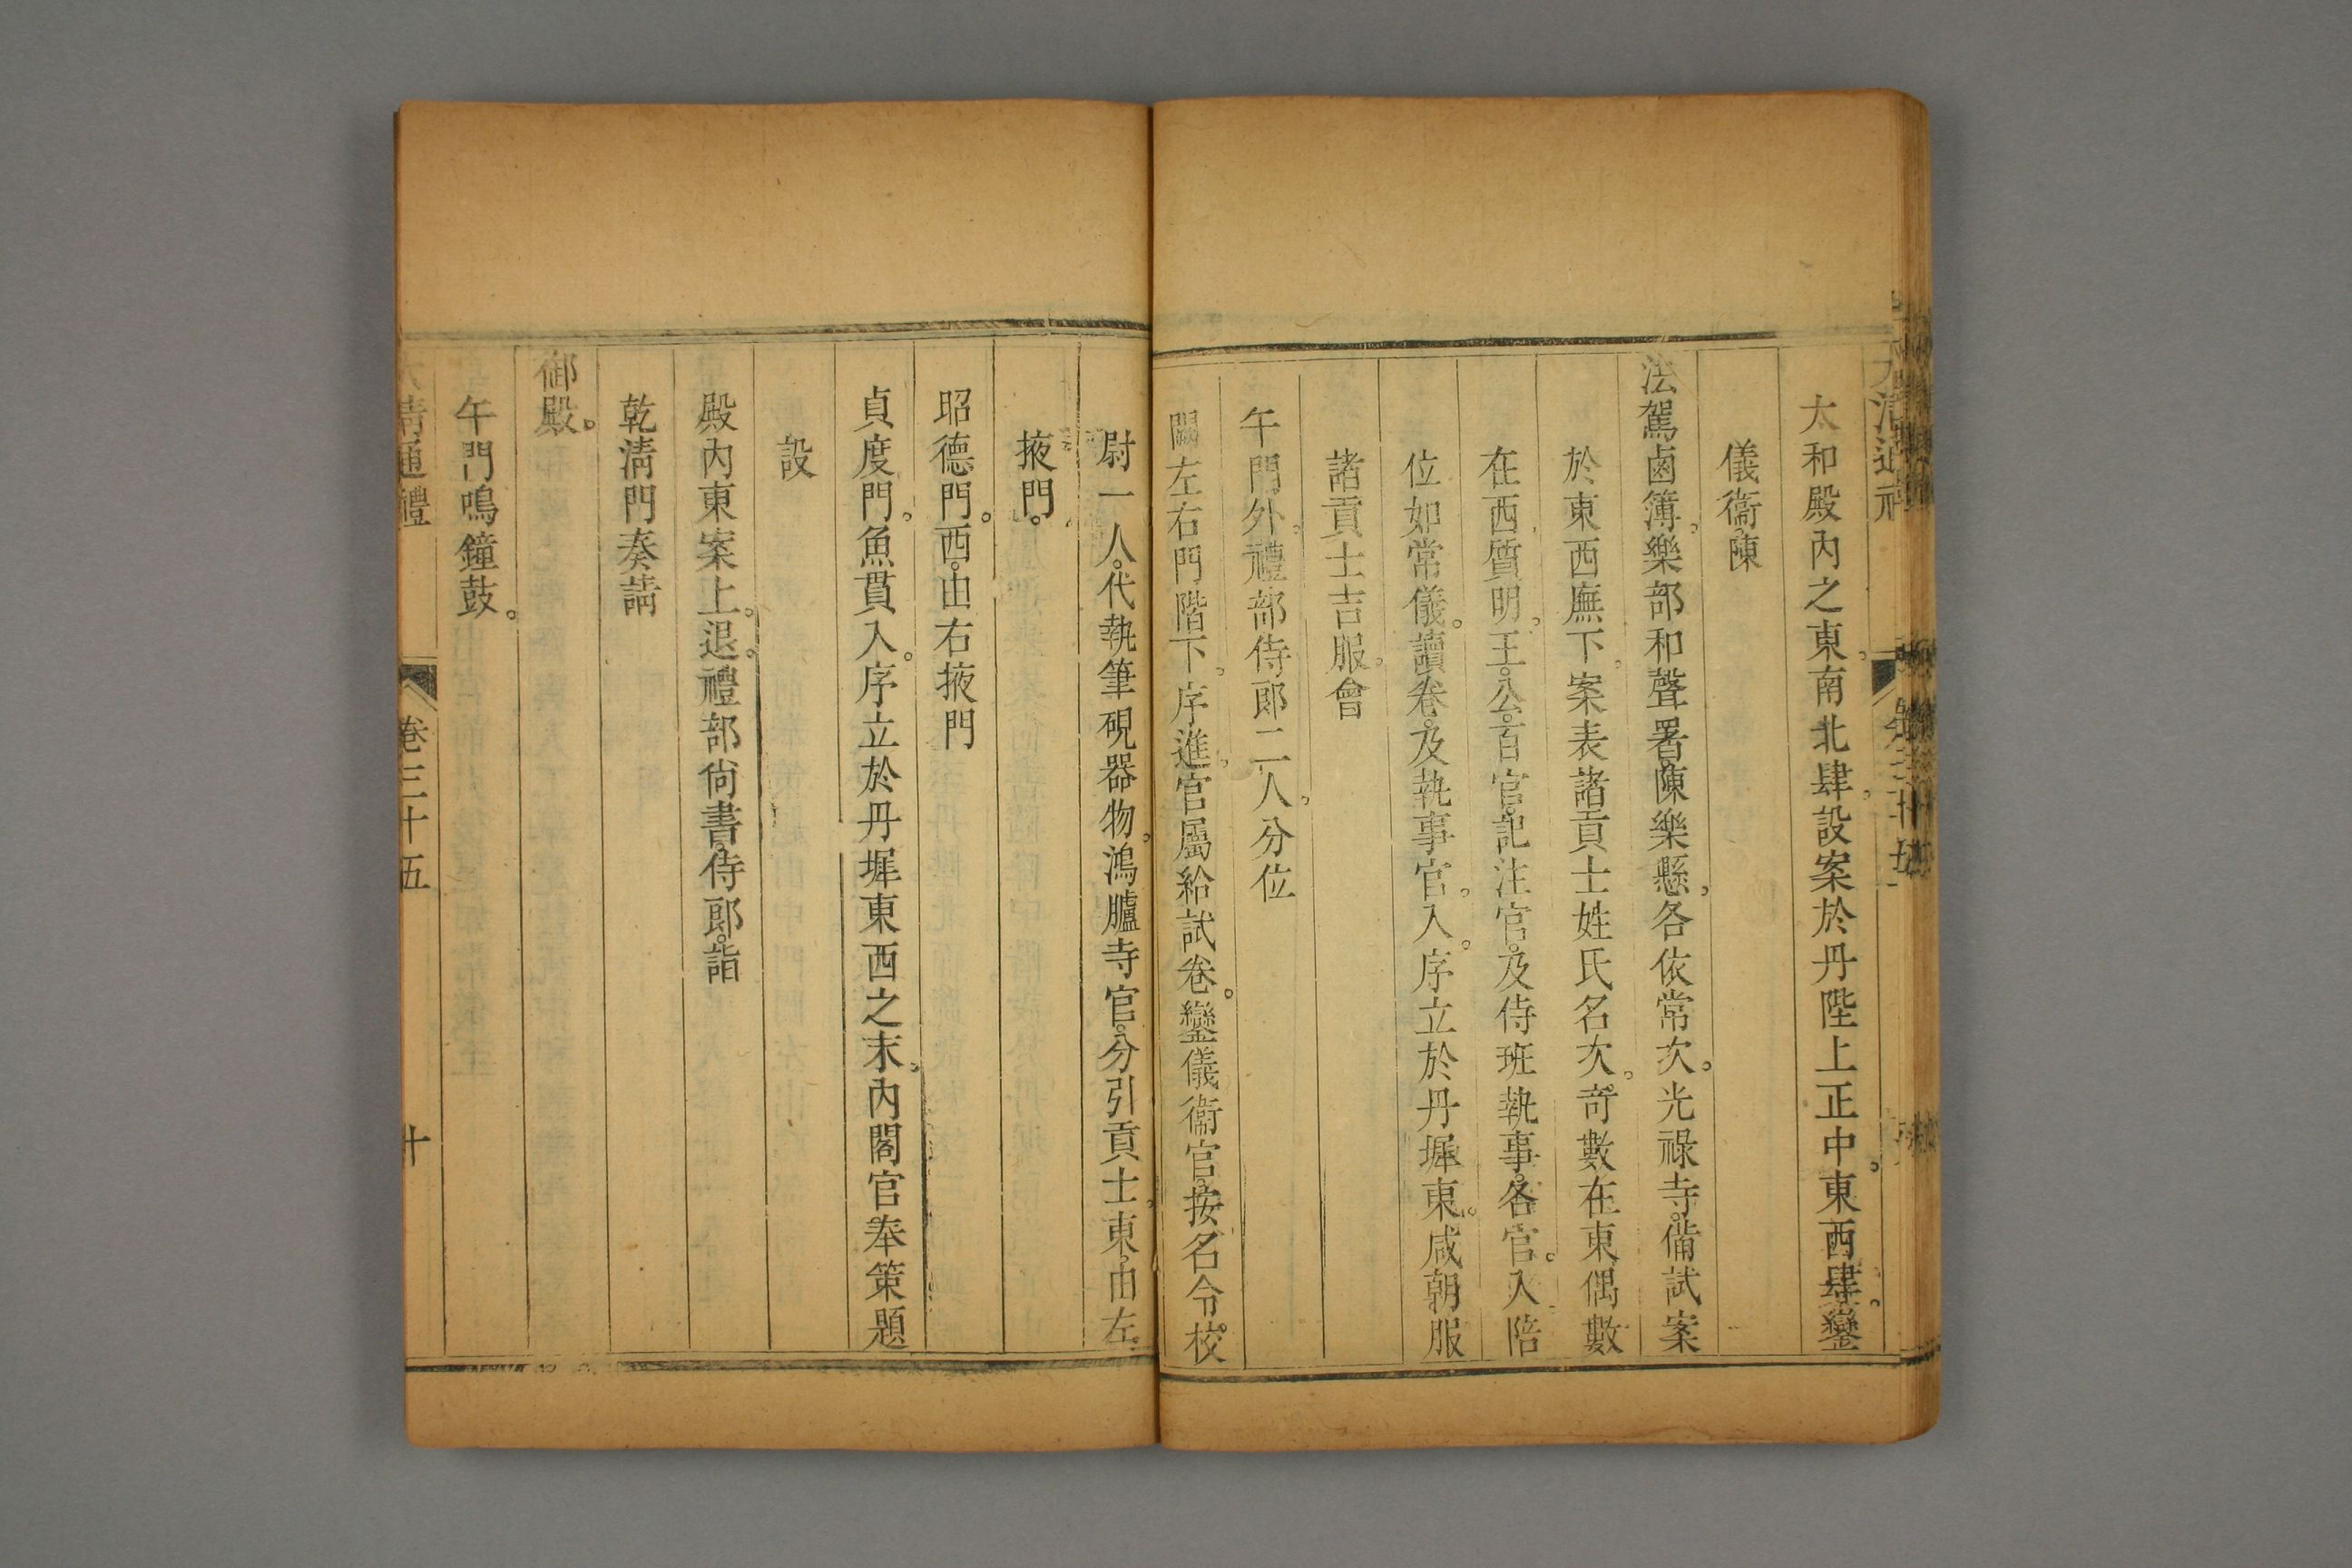 太和殿內之東。南北肆。設案於丹陛上正中。東西肆。鑾
儀衞。陳
法駕鹵簿。樂部和聲署。陳樂懸。各依常次。光祿寺。備試案
於東西廡下。案表諸貢士姓氏名次。奇數在東偶數
在西。質明。王。公。百官。記注官。及侍班執事。各官。入陪
位如常儀。讀卷。及執事官。入。序立於丹墀東。咸朝服
諸貢士吉服。會
午門外。禮部侍郎二人。分位
闕左右門階下。序進。官屬給試卷。鑾儀衞官。按名令。校
尉一人。代執筆硯器物。鴻臚寺官。分引貢士。東。由左。
掖門。
昭德門。西。由右掖門
貞度門。魚貫入。序立於丹墀東西之末。內閣官奉策題
設
殿內東案上。退。禮部尙書。侍郎。詣
乾淸門奏請
御殿。
午門鳴鐘鼓。
淸通禮
卷三十五
十